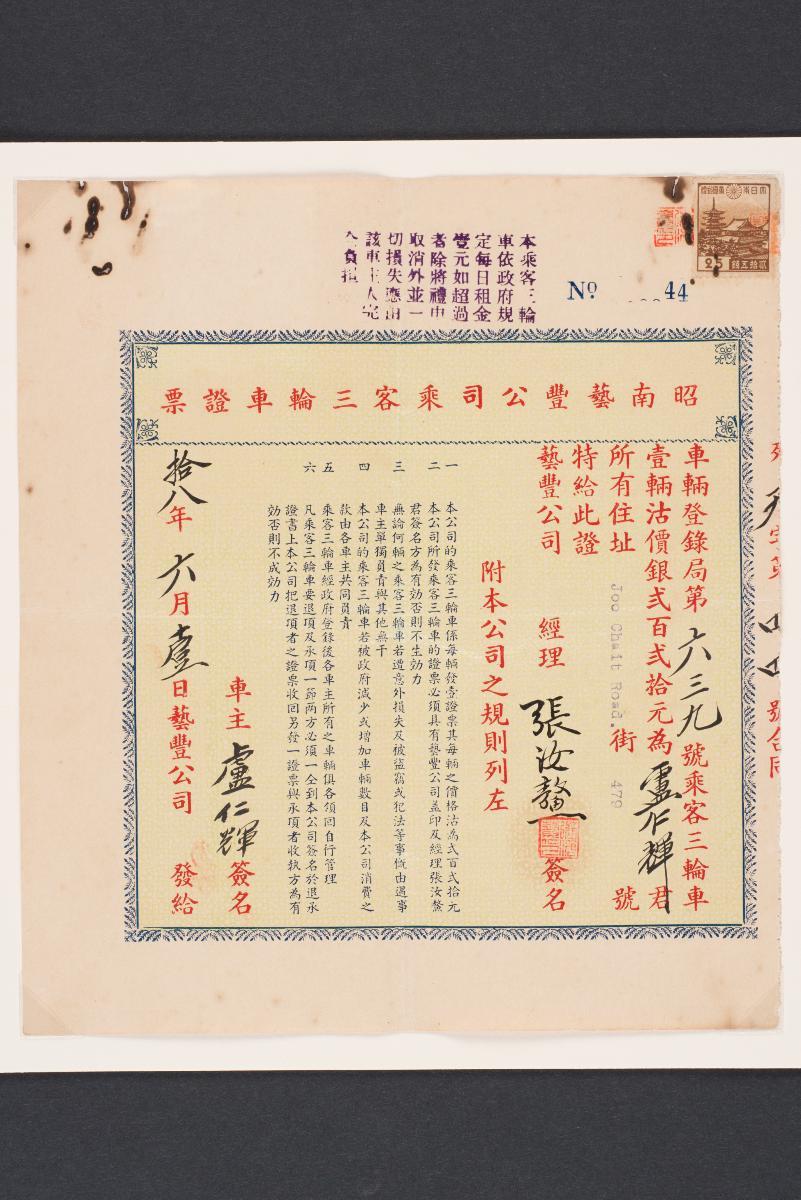 本乘客三輪
車依政府規
定每日租金
壹元如超過
者除將禮申
取消外並一
切損失應由
該車主人完
全負損
No 44
大日本帝國政府
25
貳拾五錢
昭南藝豐公司乘客三輪車證票
車輛登錄局第六三九號乘客三輪車
壹輛沽價銀弍百弍拾元為盧仁輝君
所有住址 Joo Chait Road. 街 479 號
特給此證
藝豐公司 經理 張汝鰲 簽名
附本公司之規則列左
一 本公司的乘客三輪車係每輛發壹證票其每輛之價格沽為弍百弍拾元
二 本公司所發乘客三輪車的證票必須具有藝豐公司盖印及經理張汝鰲
君簽名方為有効否則不生効力
三 無論何輛之乘客三輪車若遭意外損失及被盜竊或犯法等事慨由遇事
車主單獨負責與其他無干
四 本公司的乘客三輪車若被政府減少或增加車輛數目及本公司消費之
款由各車主共同負責
五 乘客三輪車經政府登錄後各車主所有之車輛俱各須回自行管理
六 凡乘客三輪車要退項及承項一節两方必須一仝到本公司簽名於退承
證書上本公司把退項者之證票收回另發一證票與承項者收執方為有
効否則不成効力
車主 盧仁輝 簽名
拾八年六月壹日藝豐公司 發給